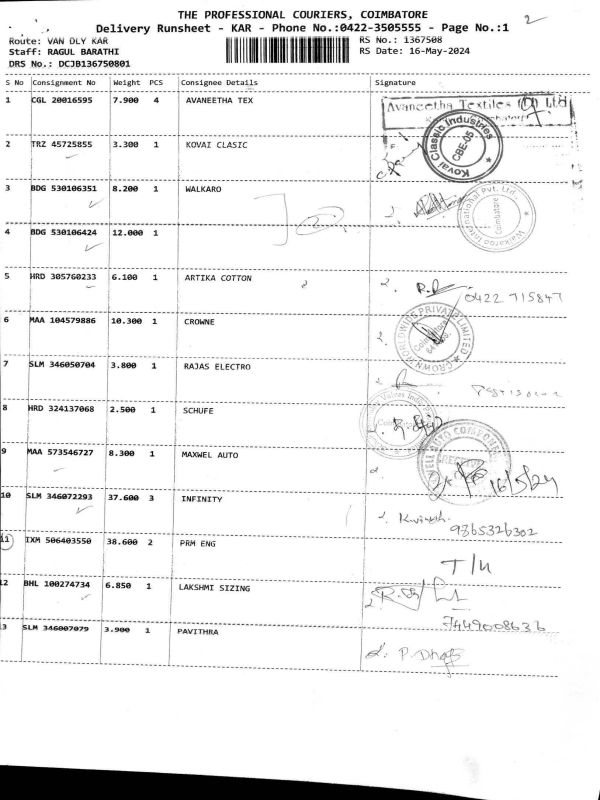 THE PROFESSIONAL COURIERS, COIMBATORE
2
Delivery Runsheet - KAR - Phone No.:0422-3505555 - Page No.:1
Route: VAN DLY KAR
RS No.: 1367508
Staff: RAGUL BARATHI
RS Date: 16-May-2024
DRS No.: DCJB136750801
S No Consignment No Weight PCS Consignee Details Signature
1 CGL 20016595 7.900 4 AVANEETHA TEX
Avaneetha Textiles (P) Ltd
Kovai Classic Industries
CBE-05
2 TRZ 45725855 3.300 1 KOVAI CLASIC
3 BDG 530106351 8.200 1 WALKARO
Walkaroo International Pvt. Ltd.
Coimbatore
4 BDG 530106424 12.000 1
5 HRD 305760233 6.100 1 ARTIKA COTTON
0422 715847
6 MAA 104579886 10.300 1 CROWNE
CROWN WORLDWIDE PRIVATE LIMITED
7 SLM 346050704 3.800 1 RAJAS ELECTRO
8 HRD 324137068 2.500 1 SCHUFE
9 MAA 573546727 8.300 1 MAXWEL AUTO
16/5/24
10 SLM 346072293 37.600 3 INFINITY
9865326302
11 IXM 506403550 38.600 2 PRM ENG
12 BHL 100274734 6.850 1 LAKSHMI SIZING
7449008636
3 SLM 346007079 3.900 1 PAVITHRA